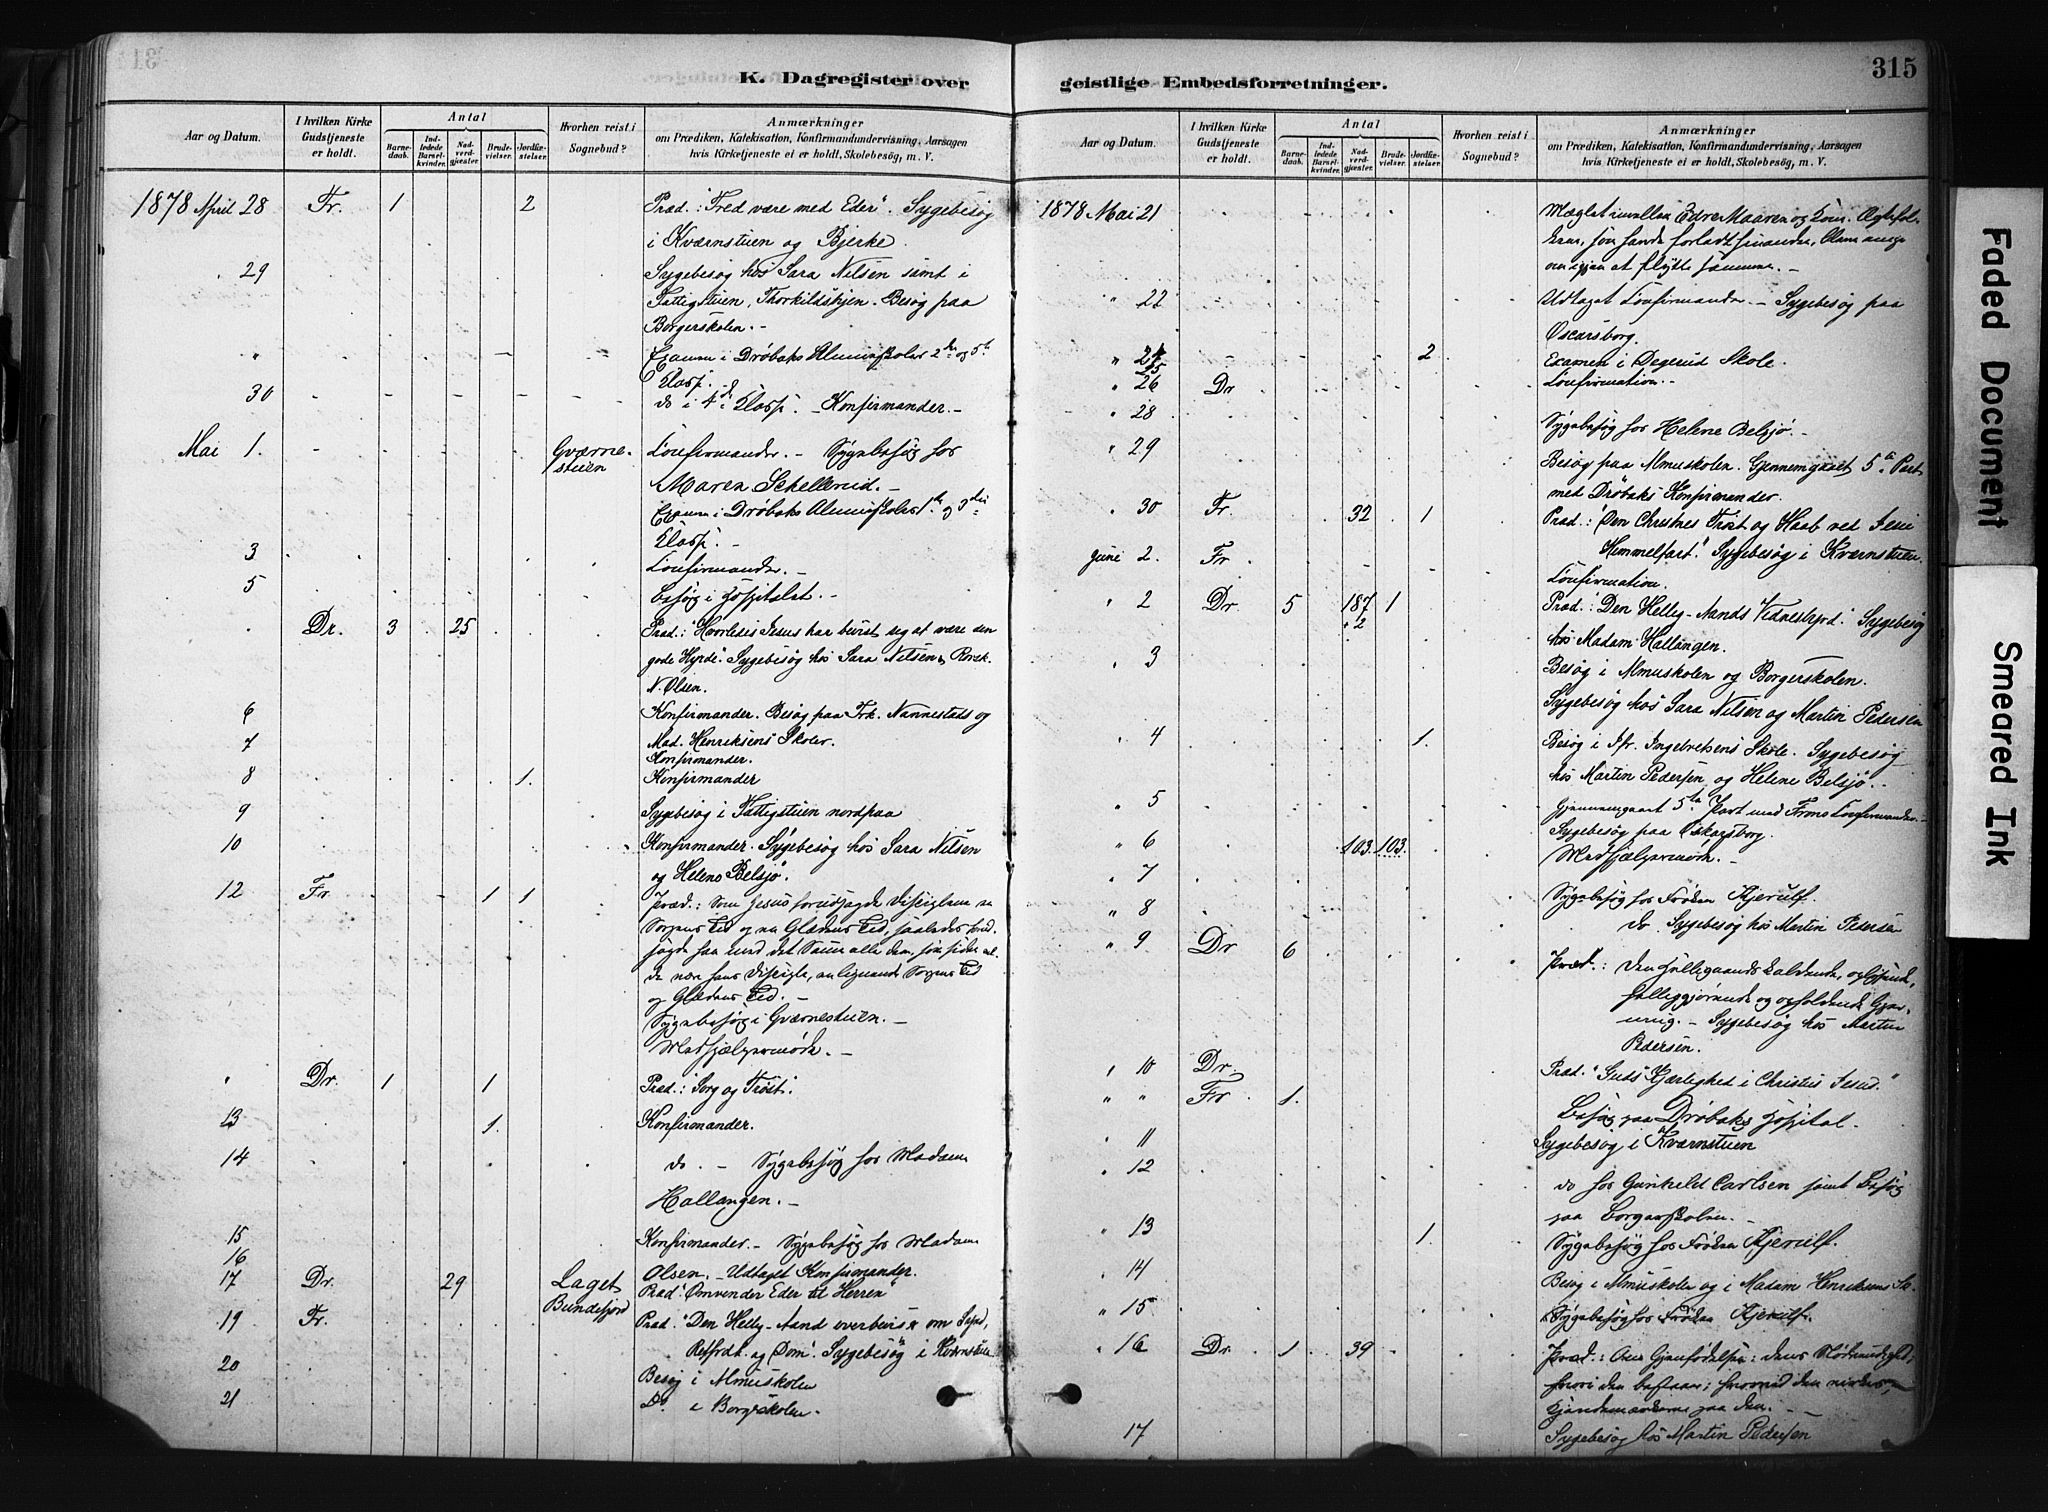 K. Dagregister over
Aar og Datum.
I hvilken Kirke Gudstjeneste er holdt.
Antal
Barnedaab.
Indledede Barselkvinder.
Nadverdgjester.
Brudevielser.
Jordfæstelser.
Hvorhen reist i Sognebud?
Anmærkninger
om Prædiken, Katekisation, Konfirmandundervisning, Aarsagen
hvis Kirketjeneste ei er holdt, Skolebesøg, m. V.
1878 April 28 Fr. 1 2 Præd.: "Fred være med Eder". Sygebesøg
i Kværnstuen og Bjerke.
29 Sygebesøg hos Sara Nilsen samt i
Fattigstuen, Thorkildskjen. Besøg paa
Borgerskolen.-
" Examen i Drøbaks Almueskoles 2den og 5te
Klasse.
30 do i 4de Klasse. - Konfirmander.-
Mai 1. Gværne-
stuen Confirmander. - Sygebesøg hos
Maren Skellerud.-
Examen i Drøbaks Almueskoles 1ste og 3die
Klasse.-
3 Confirmander.-
5 Besøg i Hospitalet.-
Dr. 3 25 Præd.: "Hvorledes Jesus har bevist sig at være den
gode Hyrde". Sygebesøg hos Sara Nilsen
N. Olsen.
6 Konfirmander. Besøg paa Frk. Nannestads og
7 Mad. Henriksens Skoler.
Konfirmander.
8 1. Konfirmander
9 Sygebesøg i Fattigstuen nordpaa
10 Konfirmander. Sygebesøg hos Sara Nilsen
og Helene Belsjø.
12 Fr. 1 1 Præd.: Som Jesus forudsagde Disciplene en
Sorgens Tid og en Glædens Tid, saaledes
og Glædens Tid.-
Sygebesøg i Gværnestuen.-
Medhjælpermøde.-
" Dr. 1 1 Præd.: "Sorg og Trøst".
13 1. Konfirmander.
14 do. - Sygebesøg hos Madam
Hallangen.-
15 Konfirmander.- Sygebesøg hos Madam
16 Olsen.- Udtaget Konfirmander.
17 Dr. 29 Laget
Bundefjord Præd. "Omvender Eder til Herren"
19 Fr. Præd. "Den Hellig-Aand overbeviser om Synd,
Retfrdt. og Dom". Sygebesøg i Kværnstuen
20 Besøg i Almueskolen
21 Do i Borgerskolen.
geistlige Embedsforretninger.
315
Aar og Datum.
I hvilken Kirke Gudstjeneste er holdt.
Antal
Barnedaab.
Indledede Barselkvinder.
Nadverdgjester.
Brudevielser.
Jordfæstelser.
Hvorhen reist i Sognebud?
Anmærkninger
om Prædiken, Katekisation, Konfirmandundervisning, Aarsagen
hvis Kirketjeneste ei er holdt, Skolebesøg, m. V.
1878 Mai 21 Mæglet imellem Edre Maaren og Kone. Ægtefol-
kene, som havde forladt hinanden,
om igjen at flytte sammen.-
" 22 Udtaget Confirmander.- Sygebesøg paa
Oscarsborg.
" 24 2 Examen i Degerud Skole.
25
" 26 Dr Confirmation.-
" 28 Sygebesøg hos Helene Belsjø.-
" 29 Besøg paa Almuskolen. Gjennemgaaet 5te Part
med Drøbaks Konfirmander.
" 30 Fr. 32 1 Præd.: "Den Christnes Trøst og Haab ved Jesu
Himmelfart". Sygebesøg i Kværnstuen.
Juni 2. Fr. Confirmation.
" 2 Dr. 5 187 1 Præd.: "Den Hellig-Aands Vidnesbyrd". Sygebesøg
+2 hos Madam Hallangen.
" 3 Besøg i Almuskolen og Borgerskolen.
Sygebesøg hos Sara Nilsen og Martin Pedersen
" 4 1. Besøg i Jfr. Ingebretsens Skole. Sygebesøg
hos Martin Pedersen og Helene Belsjø.
" 5 Gjennemgaaet 5te Part med Frons Confirmander.-
Sygebesøg paa Oskarsborg.
" 6 103. 103. Medhjælpermøde.-
" 7 Sygebesøg hos Frøken Kjerulf.
" 8 do. Sygebesøg hos Martin Pedersen
" 9 Dr 6 Præd.: Den Helligaands kaldende, oplysende,
helliggjørende og opholdende Gjer-
ning.- Sygebesøg hos Martin
Pedersen.
" 10 Dr. Præd. "Guds Kjærlighed i Christus Jesus."
" " Fr. 1. Besøg paa Drøbaks Hospital.
" 11 Sygebesøg i Kværnstuen
" 12 do hos Gunhild Carlsen samt Besøg
paa Borgerskolen.-
" 13 1. Sygebesøg hos Frøken Kjerulf.
" 14 Besøg i Almuskolen og i Madam Henriksens Sk.
" 15 Sygebesøg hos Frøken Kjerulf.
" 16 Dr. 1 39 Præd.: Om Gjenfødelsen: dens Nødvendighed;
hvori den bestaar; hvorved den virkes;
Kjendemærkerne paa den.-
17 Sygebesøg hos Martin Pedersen
Faded Document
Smeared Ink